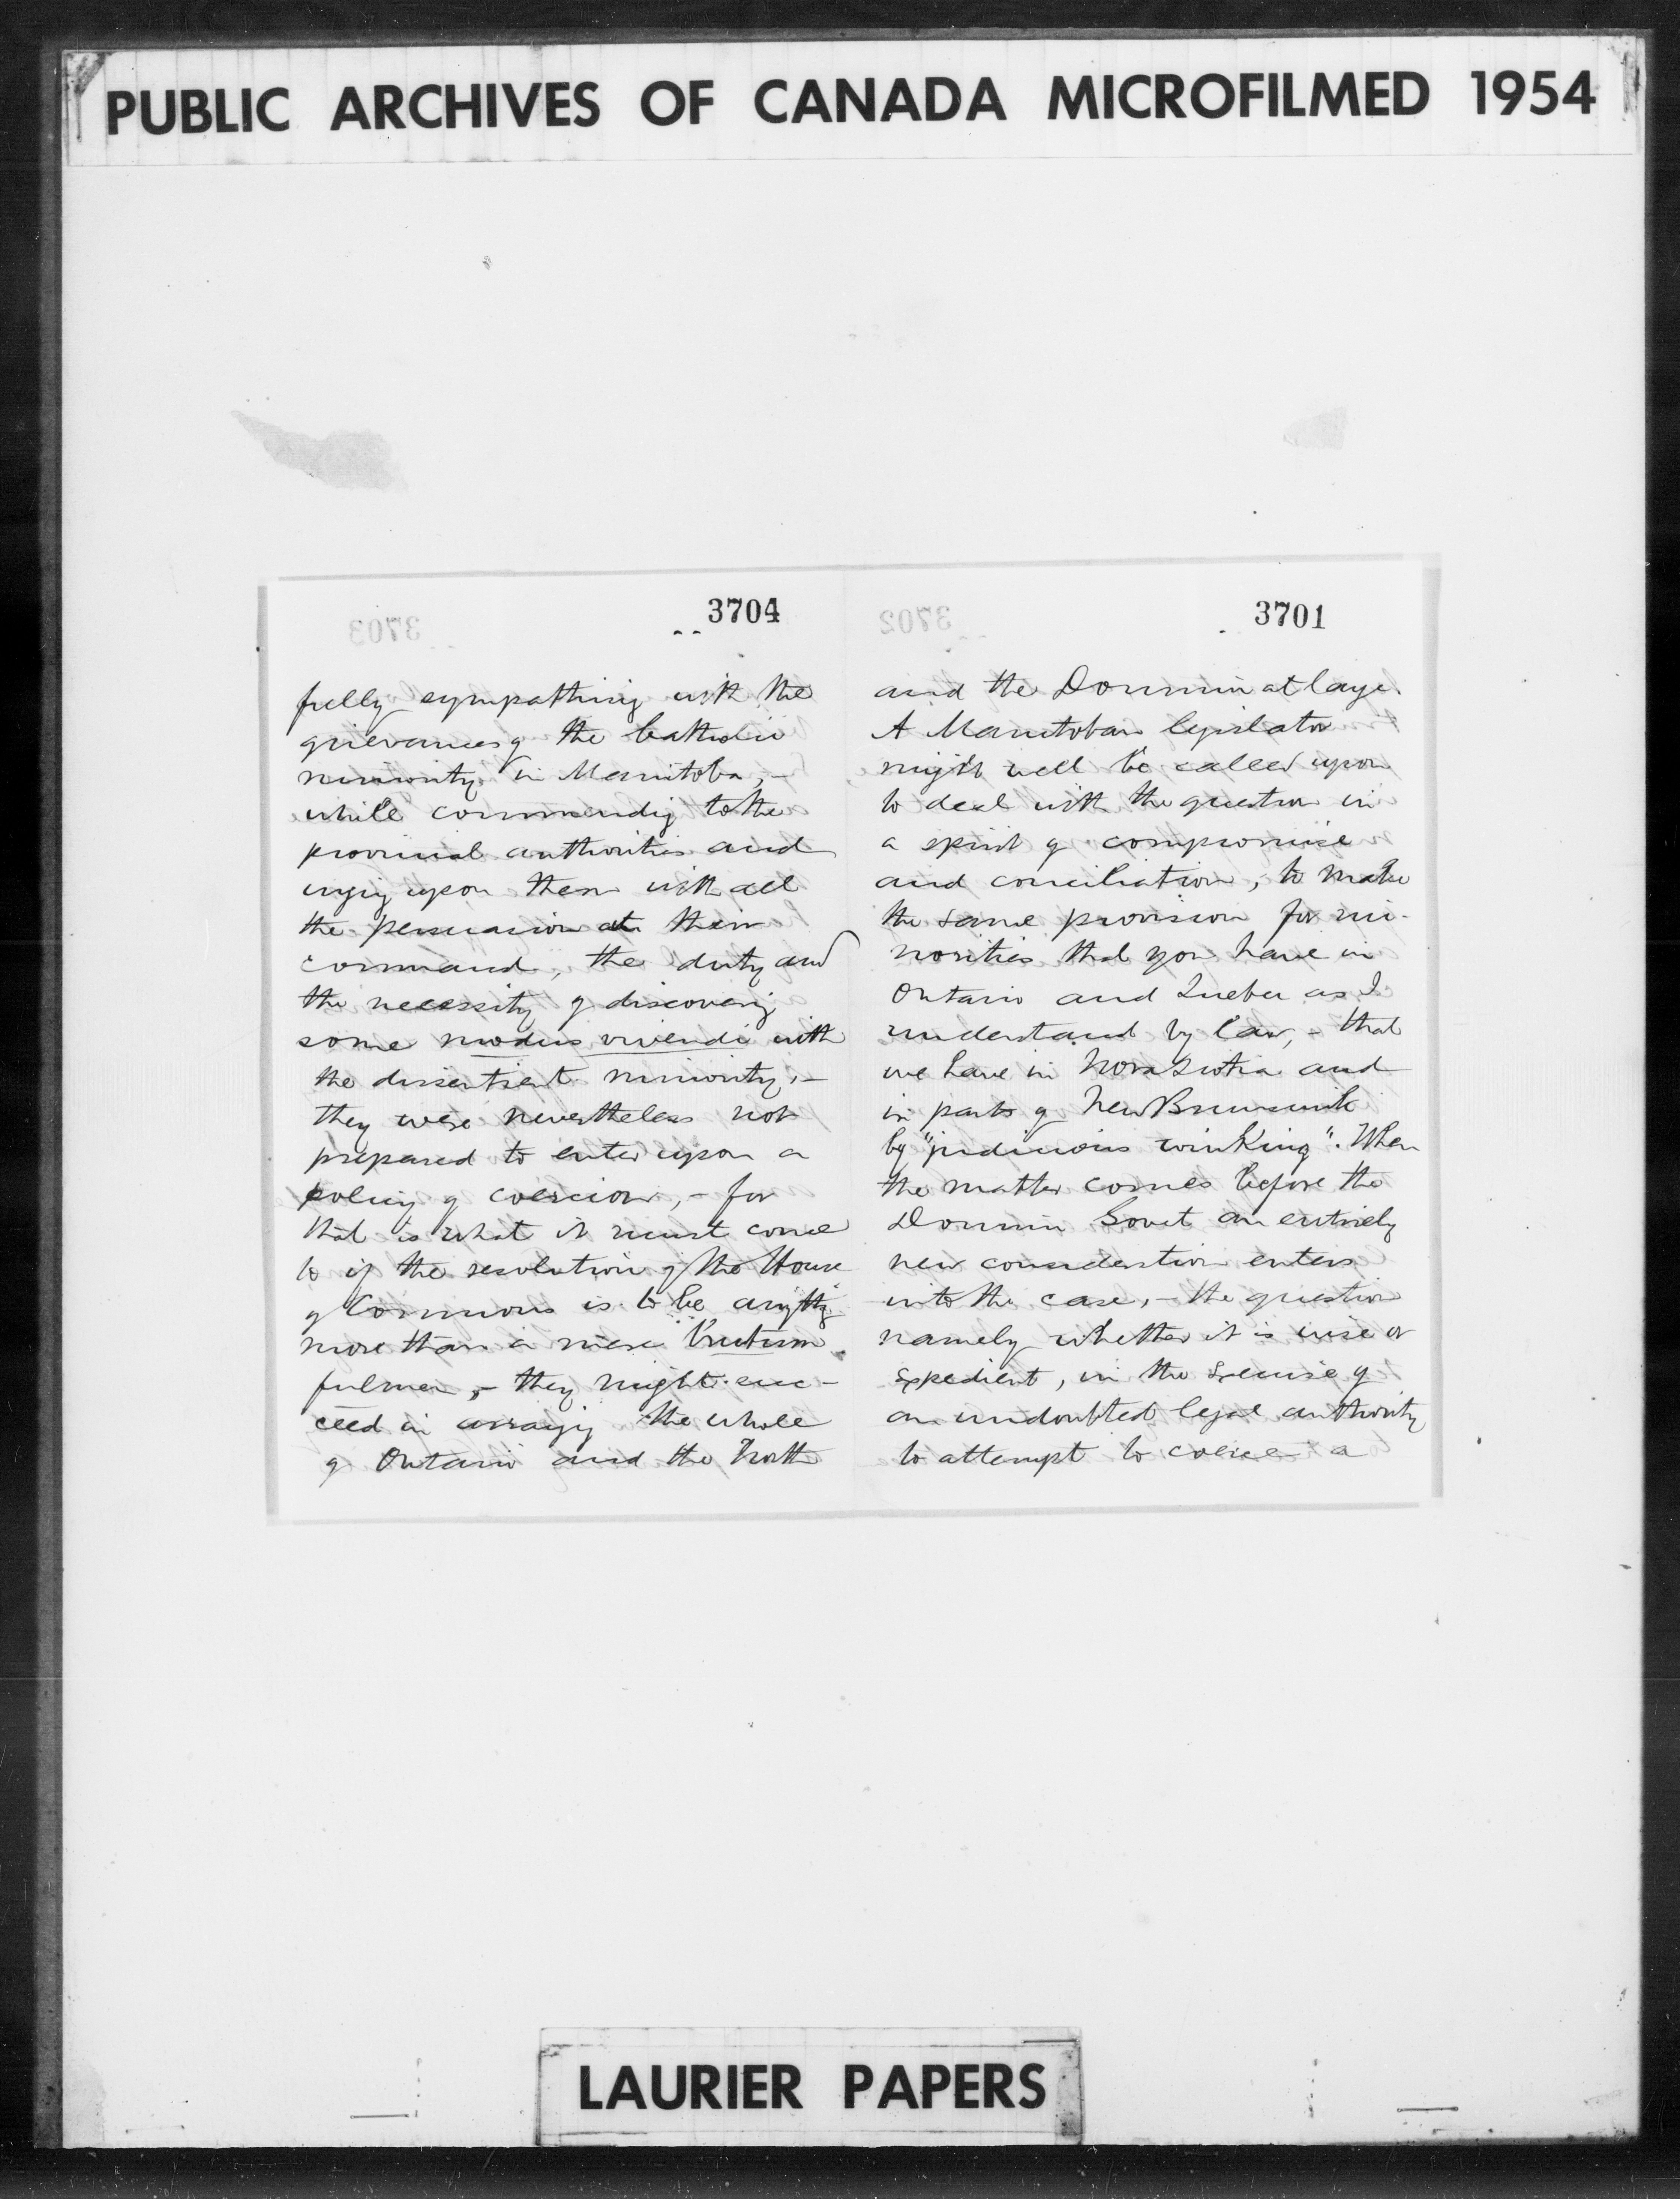 PUBLIC ARCHIVES OF CANADA MICROFILMED 1954
3703
3704
fully sympathing with the
grievances of the Catholic
minority in Manitoba, -
while commending to the
provincial authorities and
urging upon them with all
the persuasion at their
command, the duty and
the necessity of discovering
some modus vivendi with
the dissentient minority, -
they were nevertheless not
prepared to enter upon a
policy of coercion, - for
that is what it must come
to if the resolution of the House
of Commons is to be anything
more than a mere brutum
fulmen, - they might suc-
ceed in arraying the whole
of Ontario and the North
3702
3701
and the Dominion at large.
A Manitoban legislator
might well be called upon
to deal with the question in
a spirit of compromise
and conciliation, to make
the same provision for mi-
norities that you have in
Ontario and Quebec as I
understand by law, - that
we have in Nova Scotia and
in parts of New Brunswick
by "judicious winking". When
the matter comes before the
Dominion Govt an entirely
new consideration enters
into the case, - the question
namely whether it is wise or
expedient, in the exercise of
an undoubted legal authority
to attempt to coerce a
LAURIER PAPERS